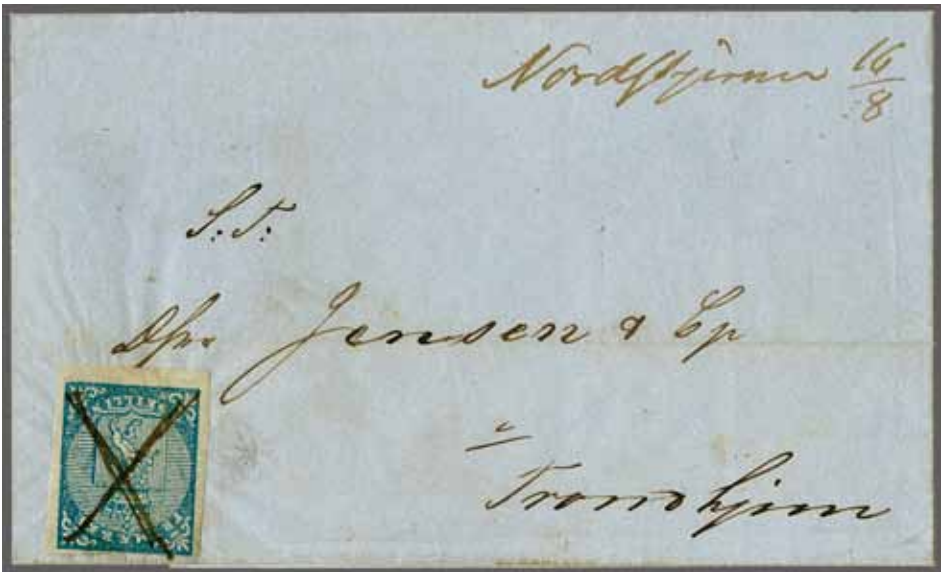 Nordstjernen 16/8
S: T:
Hrr Jensen & Cp
i
Trondhjem